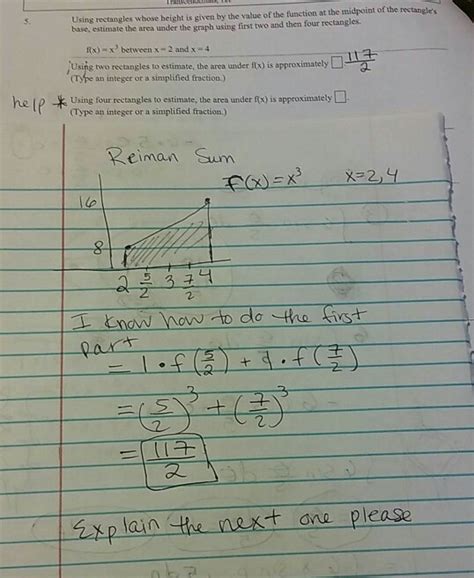 5. Using rectangles whose height is given by the value of the function at the midpoint of the rectangle's
base, estimate the area under the graph using first two and then four rectangles.
f(x) = x³ between x = 2 and x = 4
Using two rectangles to estimate, the area under f(x) is approximately □. 117/2
(Type an integer or a simplified fraction.)
help * Using four rectangles to estimate, the area under f(x) is approximately □.
(Type an integer or a simplified fraction.)
Reiman Sum
F(x)=x³ x=2,4
16
8
2 5/2 3 7/2 4
I know how to do the first
part
= 1·f(5/2) + 1·f(7/2)
= (5/2)³ + (7/2)³
= 117/2
Explain the next one please